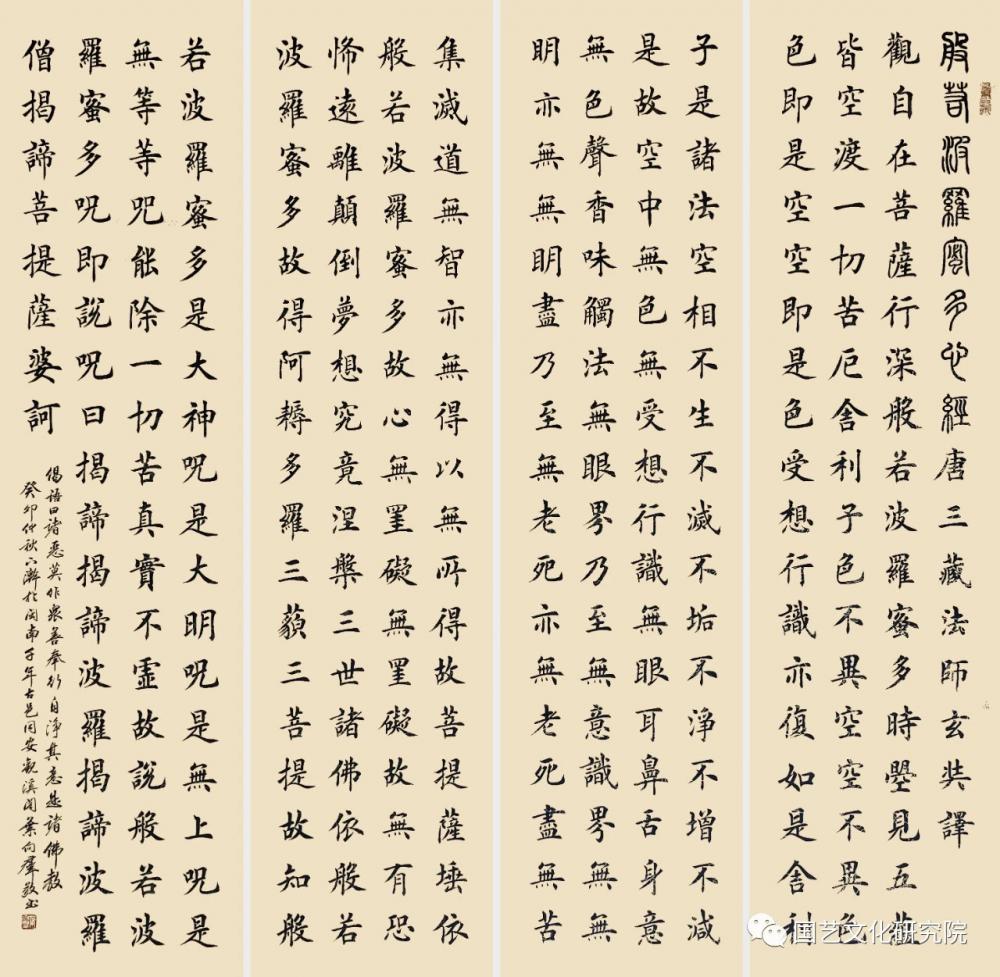 般若波羅蜜多心經唐三藏法師玄奘譯
觀自在菩薩行深般若波羅蜜多時曌見五蘊
皆空渡一切苦厄舍利子色不異空空不異色
色即是空空即是色受想行識亦復如是舍利
子是諸法空相不生不滅不垢不淨不增不減
是故空中無色無受想行識無眼耳鼻舌身意
無色聲香味觸法無眼界乃至無意識界無無
明亦無無明盡乃至無老死亦無老死盡無苦
集滅道無智亦無得以無所得故菩提薩埵依
般若波羅蜜多故心無罣礙無罣礙故無有恐
怖遠離顛倒夢想究竟涅槃三世諸佛依般若
波羅蜜多故得阿耨多羅三藐三菩提故知般
若波羅蜜多是大神咒是大明咒是無上咒是
無等等咒能除一切苦真實不虛故說般若波
羅蜜多咒即說咒曰揭諦揭諦波羅揭諦波羅
僧揭諦菩提薩婆訶
偈語曰諸惡莫作眾善奉行自淨其意是諸佛教
癸卯仲秋下澣於閩南千年古邑同安觀溪閣葉向群敬書
国艺文化研究院